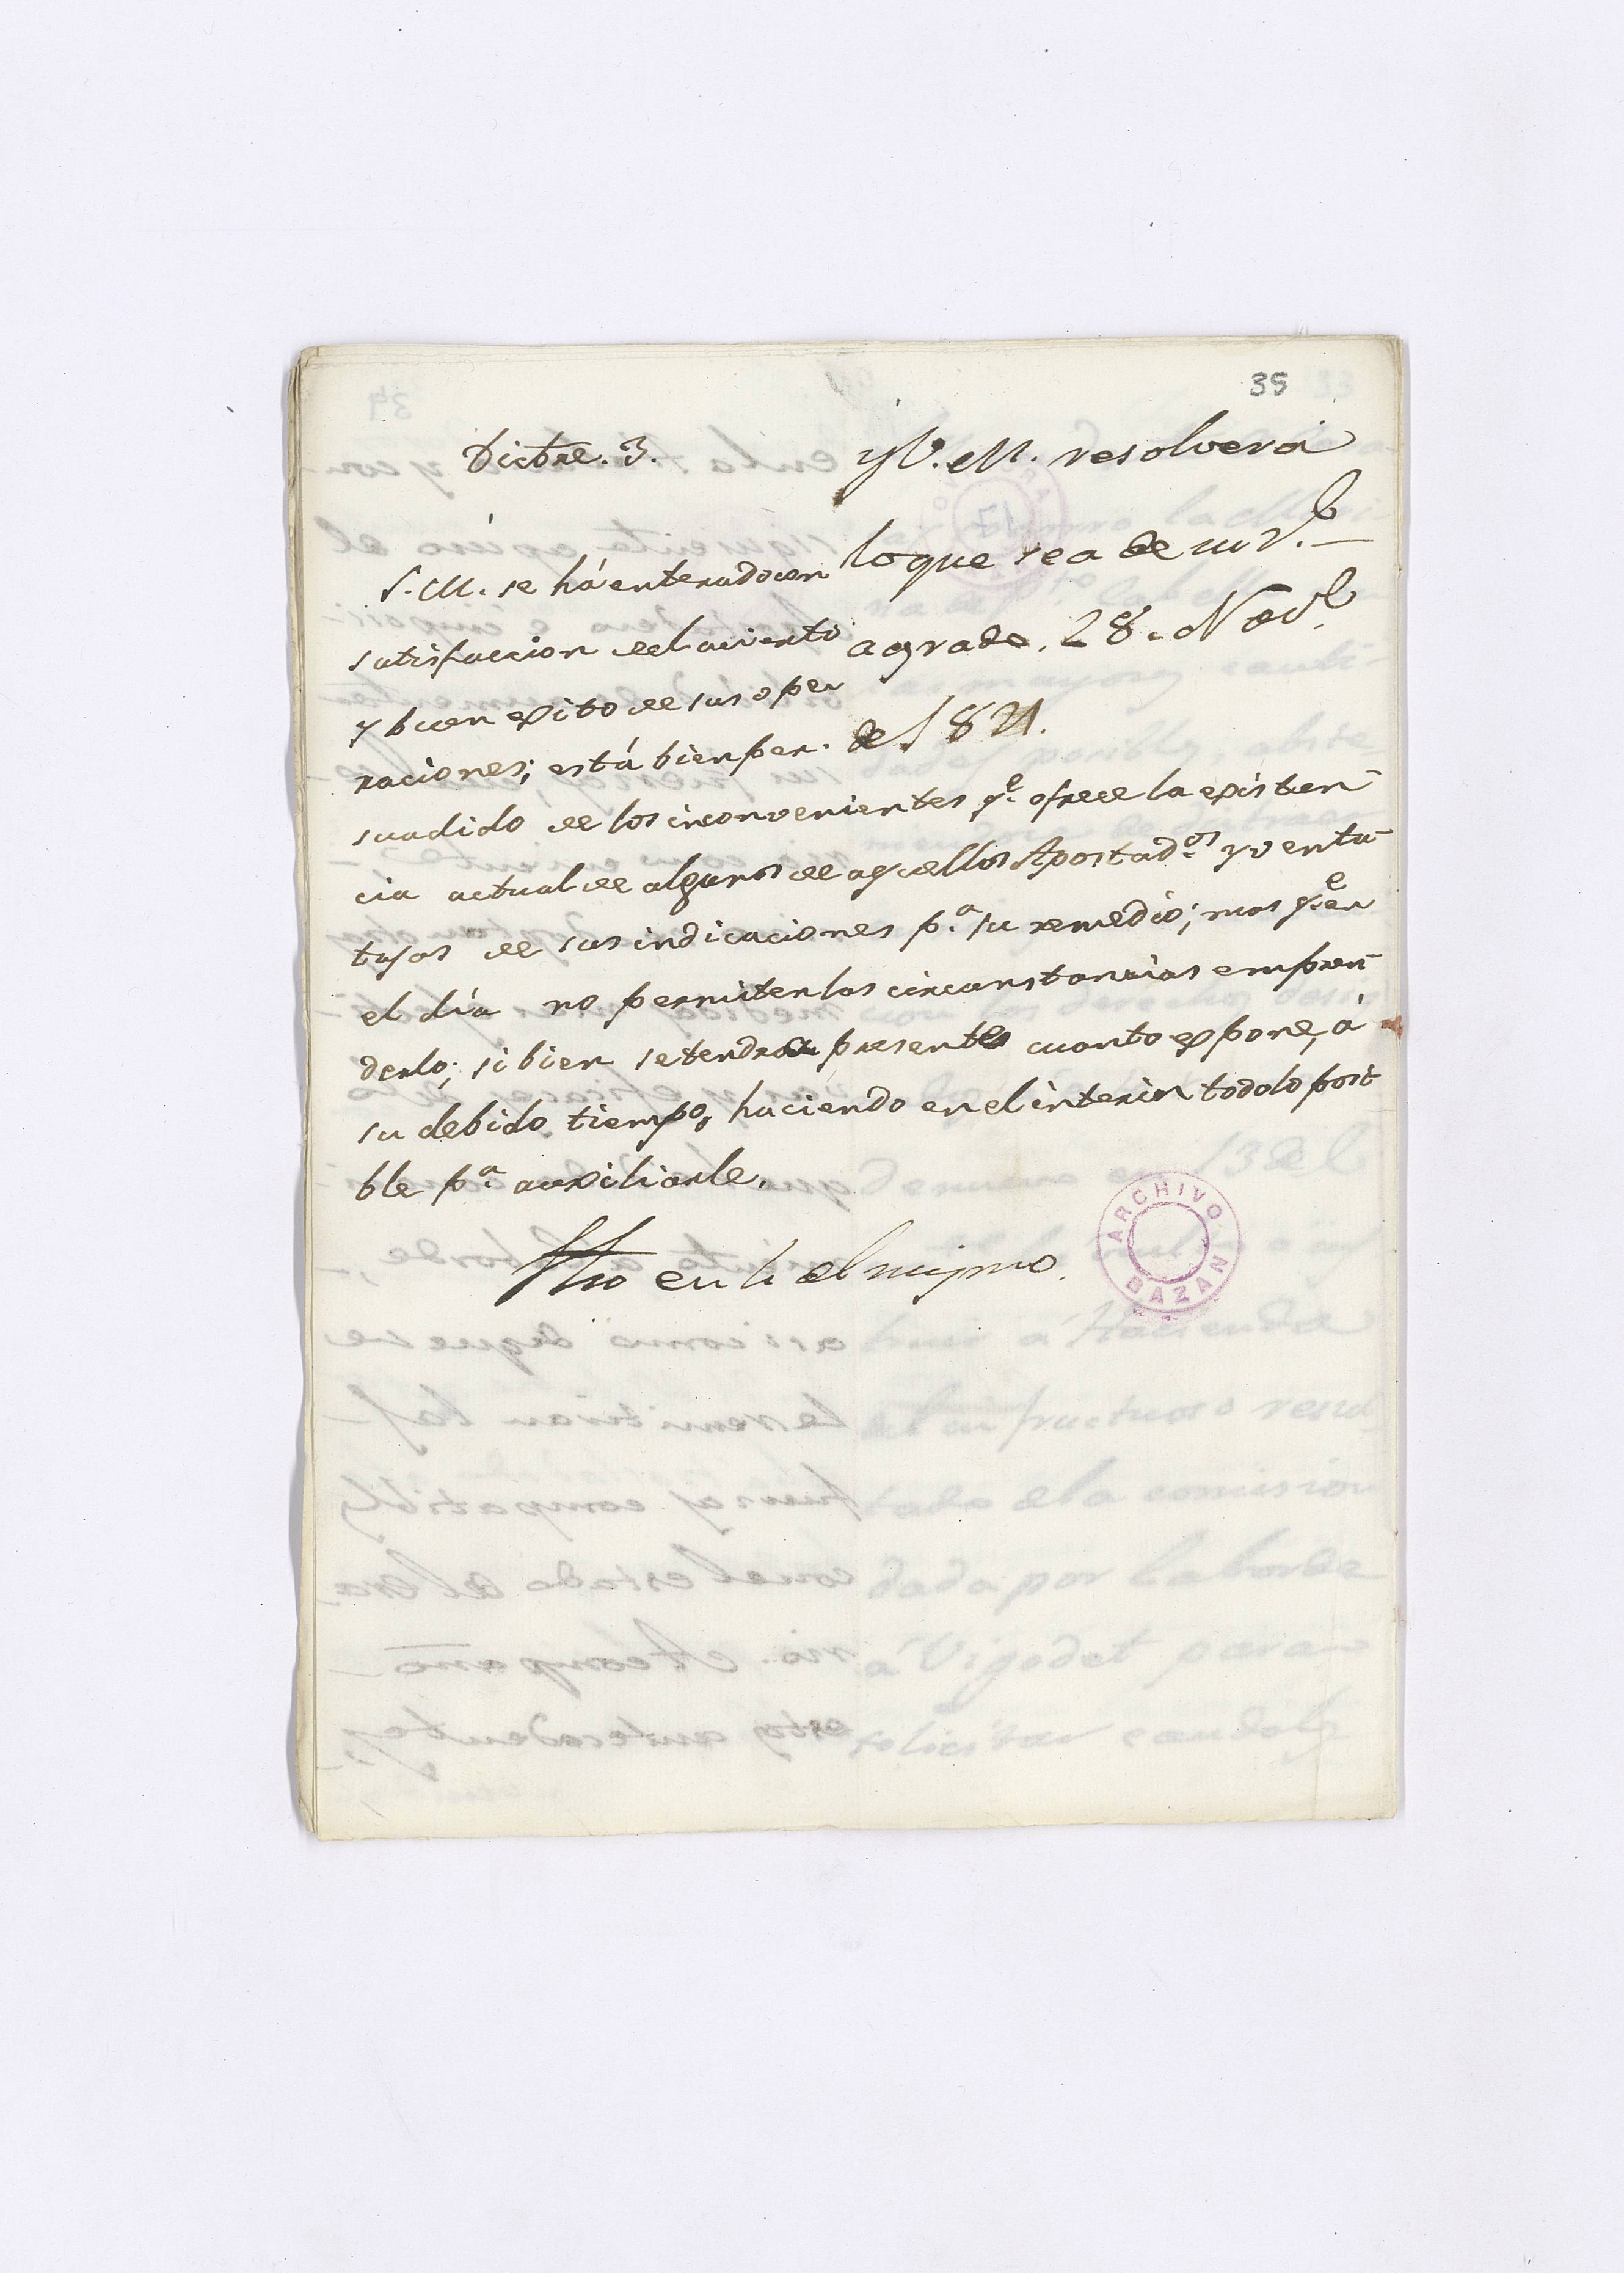 35
y V. M. resolverá
lo que sea de su R.l
agrado. 28. Nov.e
de 1821.
Dictre. 3.
S. M. se há enterado con
satisfaccion del acierto
y buen exito de sus ope
raciones; está bien per.
suadido de los inconvenientes q.e ofrece la existen
cia actual de algunos de aquellos Apostad.os y venta
tajas de sus indicaciones p.a su remedio; mas q.e en
el día no permiten las circunstancias empren
derlo; si bien se tendrá presente cuanto expone, á
su debido tiempo, haciendo en el interin todo lo posi
ble p.a auxiliarle.
fho en 4 del mismo.
ARCHIVO
BAZAN